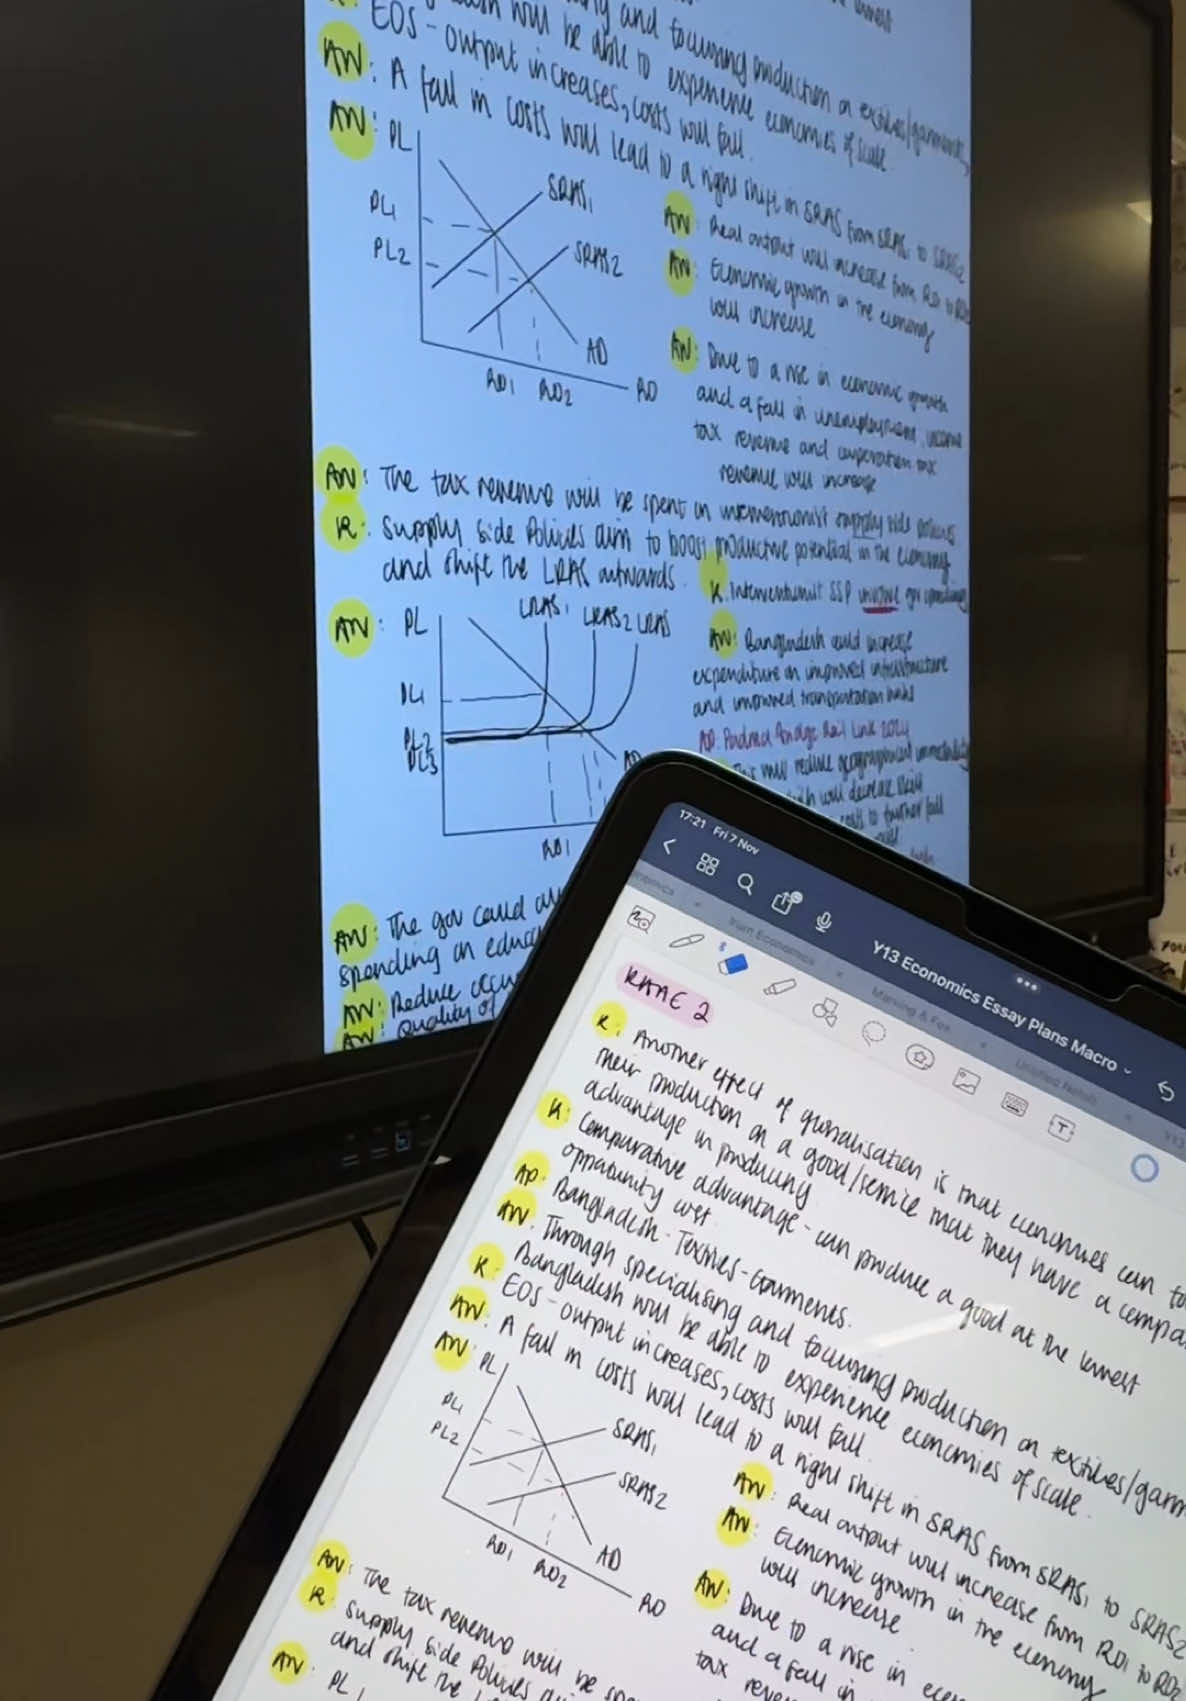 and focusing production on textiles/garments,
will be able to experience economies of scale.
EOS - output increases, costs will fall.
AN: A fall in costs will lead to a right shift in SRAS from SRAS1 to SRAS2
AN:
PL
PL1
PL2
SRAS1
SRAS2
AD
RO1
RO2
RO
AN: Real output will increase from RO1 to RO2
AN: Economic growth in the economy
will increase
AN: Due to a rise in economic growth
and a fall in unemployment, income
tax revenue and corporation tax
revenue will increase
AN: The tax revenue will be spent on interventionist supply side policies
K: Supply side policies aim to boost productive potential in the economy
and shift the LRAS outwards.
K: Interventionist SSP involve gov spending
AN:
PL
LRAS1
LRAS2
LRAS
PL1
PL2
PL3
RO1
AN: Bangladesh could increase
expenditure on improved infrastructure
and improved transportation links
AP: Padma Bridge Rail Link 2024
This will reduce geographical immobility
which will decrease
costs to further fall
AN: The gov could
spending on
AN: Reduce
AN: Quality of
17:21 Fri 7 Nov
Y13 Economics Essay Plans Macro
Marking & Fee
Untitled Noteb
Y13
KAAE 2
K: Another effect of globalisation is that economies can
their production on a good/service that they have a compa
advantage in producing
K: Comparative advantage - can produce a good at the lowest
opportunity cost.
AP: Bangladesh - Textiles - Garments.
AN: Through specialising and focusing production on textiles/garm
K: Bangladesh will be able to experience economies of scale.
EOS - output increases, costs will fall.
AN: A fall in costs will lead to a right shift in SRAS from SRAS1 to SRAS2
AN:
PL
PL1
PL2
SRAS1
SRAS2
AD
RO1
RO2
RO
AN: Real output will increase from RO1 to RO2
AN: Economic growth in the economy
will increase
AN: Due to a rise in
and a fall in
tax
AN: The tax revenue will be
K: Supply side policies
and shift the
AN:
PL